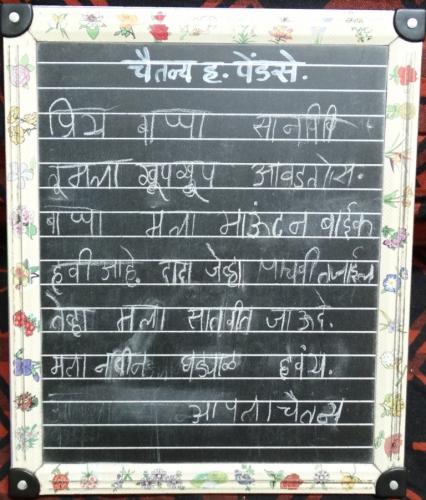 चैतन्य ह. पेंडसे.
प्रिय बाप्पा सा.न.वि.वि
तू मला खूपखूप आवडतोस.
बाप्पा मला माऊंटन बाईक
हवी आहे. दादा जेव्हा पाचवीत जाईल
तेव्हा मला सातवीत जाऊदे.
मला नवीन घड्याळ हवंय.
आपला चैतन्य